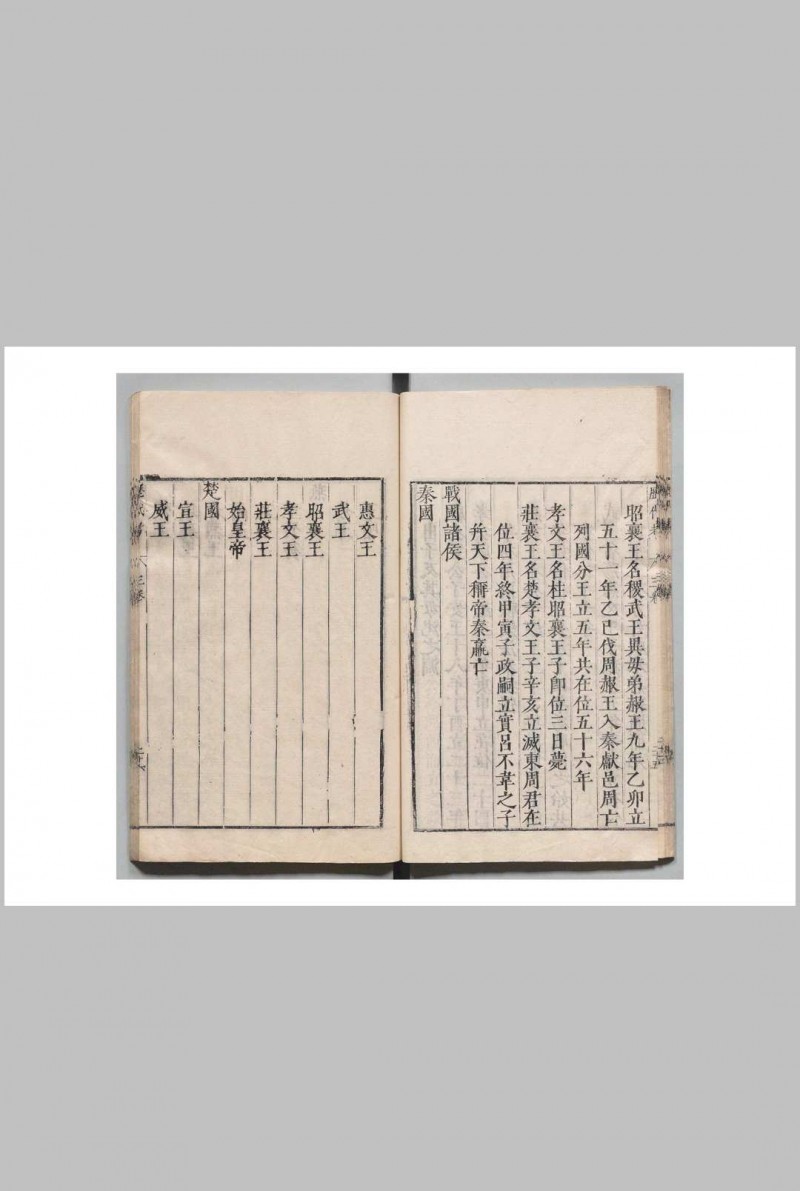 昭襄王名稷武王異毋弟赧王九年乙卯立
五十一年乙巳伐周赧王入秦獻邑周亡
列國分王立五年共在位五十六年
孝文王名柱昭襄王子卽位三日薨
莊襄王名楚孝文王子辛亥立滅東周君在
位四年終甲寅子政嗣立實呂不韋之子
幷天下稱帝秦嬴亡
戰國諸侯
秦國
惠文王
武王
昭襄王
孝文王
莊襄王
始皇帝
楚國
宣王
威王